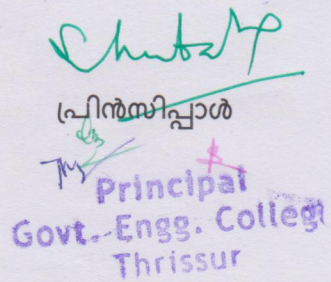 പ്രിൻസിപ്പാൾ
Principal
Govt. Engg. College
Thrissur